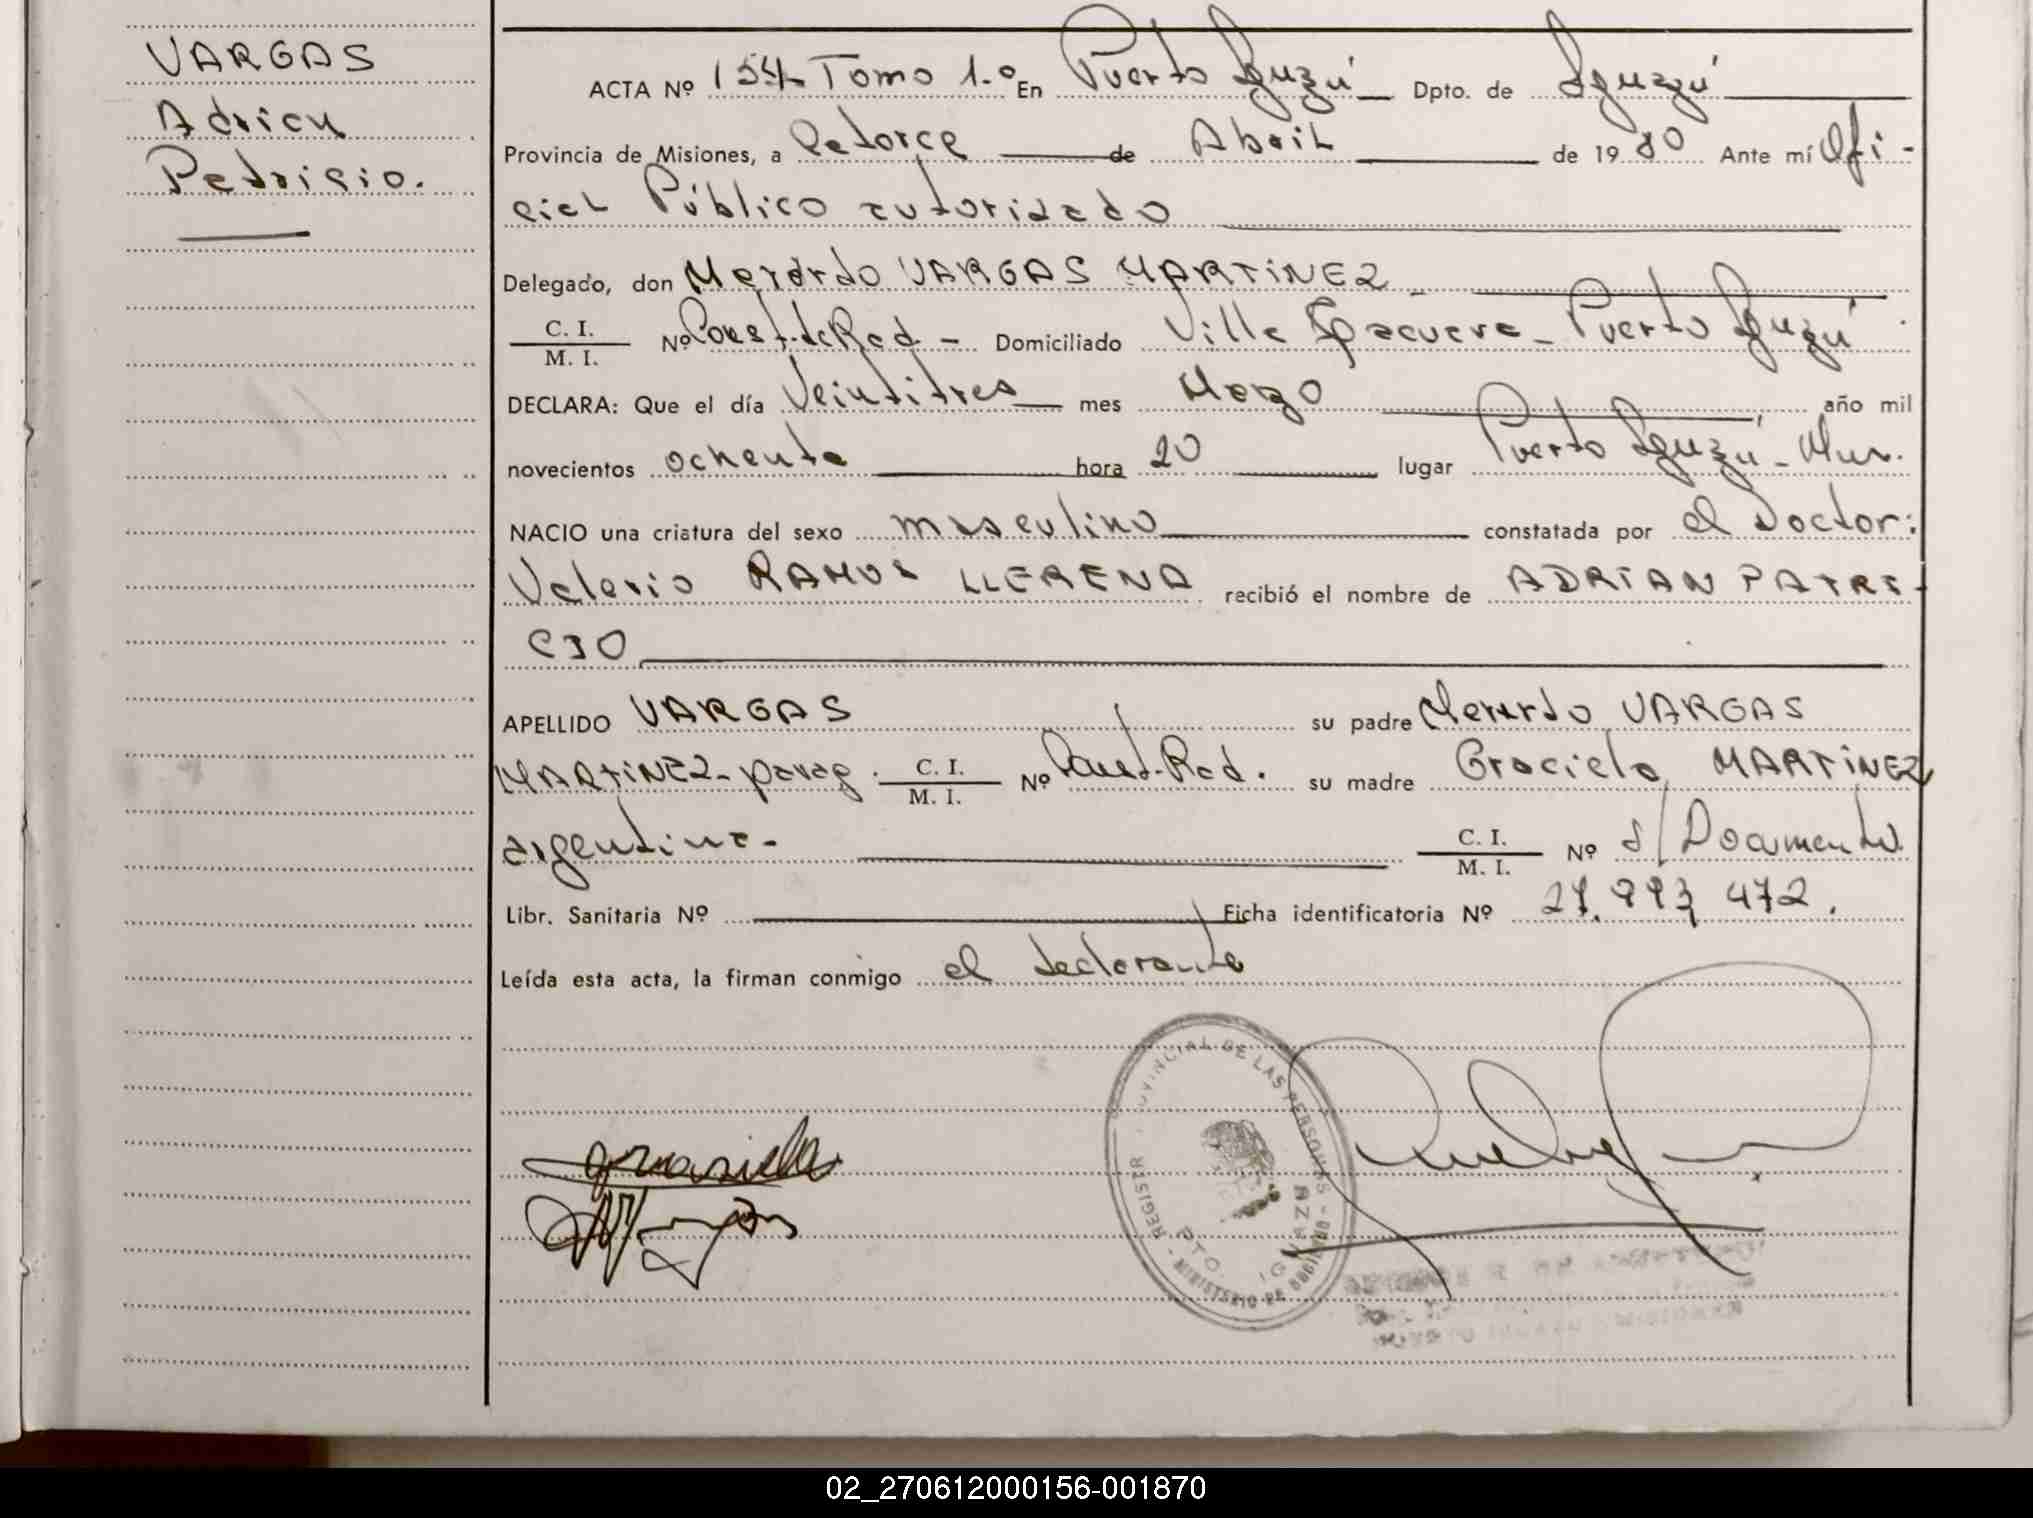 VARGAS
Adrian
Patricio.
ACTA Nº 154 Tomo 1.º En Puerto Iguazú Dpto. de Iguazú
Provincia de Misiones, a Catorce de Abril de 1980 Ante mí Ofi-
cial Público autorizado
Delegado, don Merardo VARGAS MARTINEZ
C. I. / M. I. Nº Const. de Rad. - Domiciliado Villa - Puerto Iguazú
DECLARA: Que el día Veintitres mes Marzo año mil
novecientos ochenta hora 20 lugar Puerto Iguazú -
NACIO una criatura del sexo masculino constatada por el Doctor:
Valerio RAMOS LLERENA recibió el nombre de ADRIAN PATRI-
CIO
APELLIDO VARGAS su padre Merardo VARGAS
MARTINEZ - parag. C. I. / M. I. Nº Const. Rad. su madre Graciela MARTINEZ
argentina - C. I. / M. I. Nº S/ Documento
Libr. Sanitaria Nº Ficha identificatoria Nº 27.993 472.
Leída esta acta, la firman conmigo el declarante
REGISTRO PROVINCIAL DE LAS PERSONAS
MINISTERIO DE GOBIERNO
PTO. IGUAZU
02_270612000156-001870